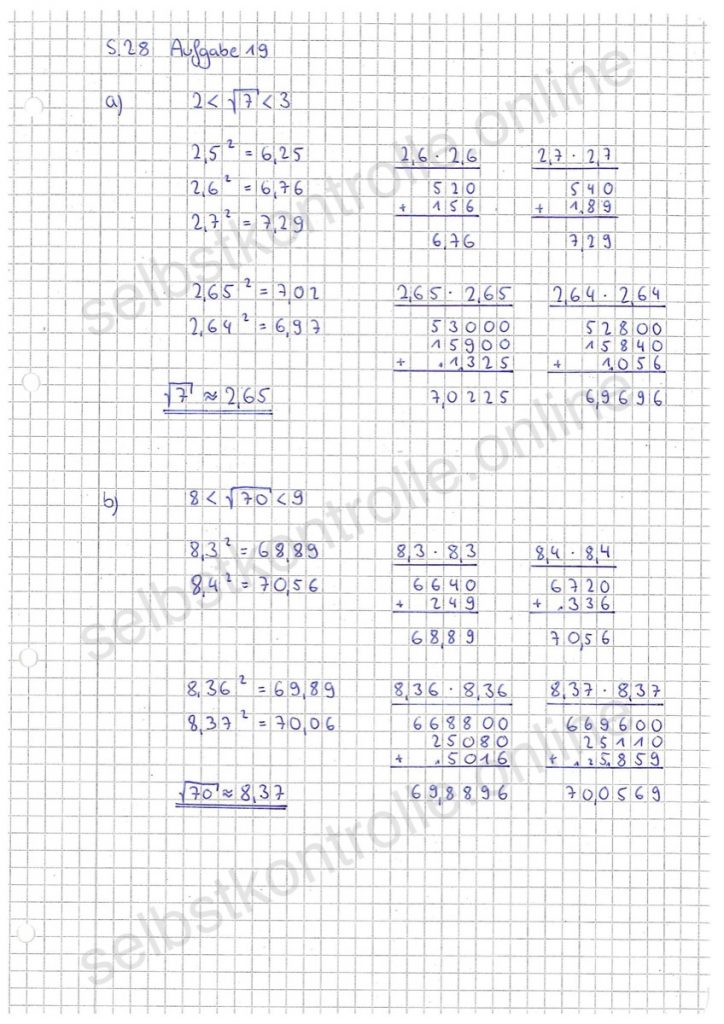 S. 28 Aufgabe 19
a) 2 < √7 < 3
2,5² = 6,25
2,6² = 6,76
2,7² = 7,29
2,6 · 2,6
520
+ 156
6,76
2,7 · 2,7
540
+ 189
7,29
2,65² = 7,02
2,64² = 6,97
2,65 · 2,65
53000
15900
+ 1325
7,0225
2,64 · 2,64
52800
15840
+ 1056
6,9696
√7 ≈ 2,65
b) 8 < √70 < 9
8,3² = 68,89
8,4² = 70,56
8,3 · 8,3
6640
+ 249
68,89
8,4 · 8,4
6720
+ 336
70,56
8,36² = 69,89
8,37² = 70,06
8,36 · 8,36
668800
25080
+ 5016
69,8896
8,37 · 8,37
669600
25110
+ 5859
70,0569
√70 ≈ 8,37
selbstkontrolle.online
selbstkontrolle.online
selbstkontrolle.online